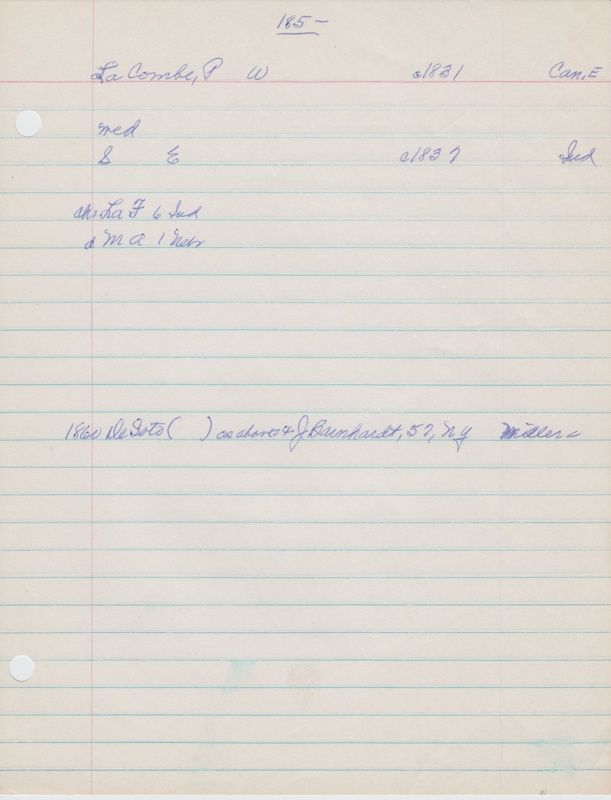 185-
La Combe, P W c1831 Can, E
med
S E c1837 Ind
ch: La F 6 Ind
& M A 1 Neb
1860 De Soto ( ) as above & J Barnhardt, 57, NY